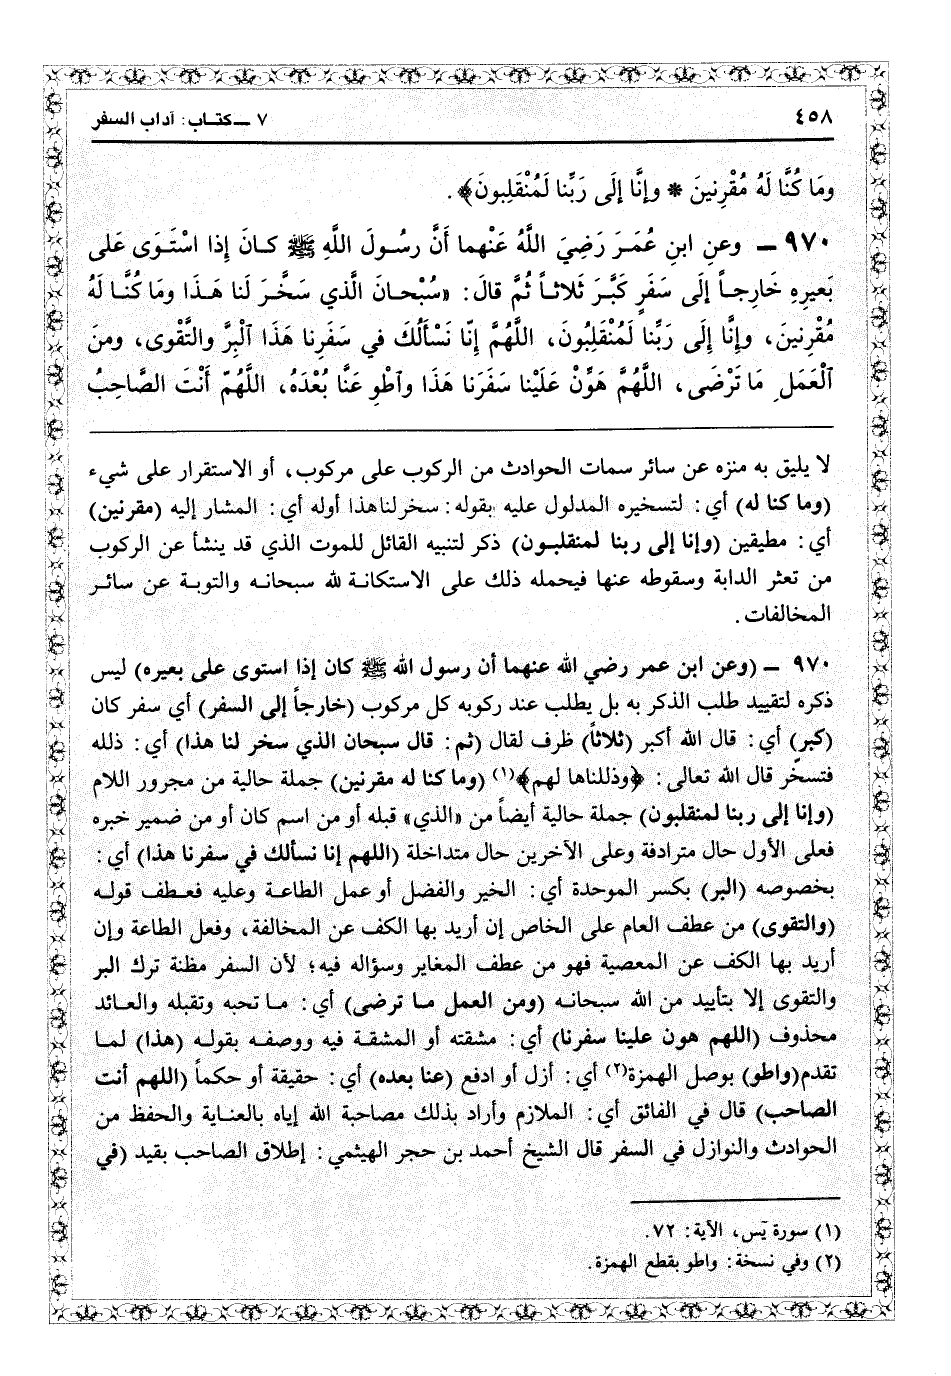 ٤٥٨
٧ ــ كتـاب: آداب السفر
ومَا كُنَّا لَهُ مُقْرِنينَ * وإنَّا إلَى رَبِّنا لَمُنْقَلِبونَ﴾.
٩٧٠ ــ وعنِ ابنِ عُمَرَ رَضِيَ اللَّهُ عَنْهما أَنَّ رسُولَ اللَّهِ ﷺ كـانَ إذا اسْتَوَى عَلى
بَعيرِهِ خَارِجـاً إلَى سَفَرٍ كَبَّرَ ثَلاثـاً ثُمَّ قالَ: «سُبْحانَ الَّذي سَخَّرَ لَنا هَـذَا ومَا كُنَّـا لَهُ
مُقْرِنينَ، وإنَّا إلَى رَبِّنا لَمُنْقَلِبُونَ، اللَّهُمَّ إنّا نَسْأَلُكَ في سَفَرِنا هَذَا ٱلْبِرَّ والتَّقْوى، ومنَ
ٱلْعَمَلِ مَا تَرْضَى، اللَّهُمَّ هَوِّنْ عَلَيْنا سَفَرَنا هَذَا وٱطْوِ عَنَّا بُعْدَهُ، اللَّهُمّ أَنْتَ الصَّاحِبُ
لا يليق به منزه عن سائر سمات الحوادث من الركوب على مركوب، أو الاستقرار على شيء
(وما كنا له) أي: لتسخيره المدلول عليه بقوله: سخر لنا هذا أوله أي: المشار إليه (مقرنين)
أي: مطيقين (وإنا إلى ربنا لمنقلبـون) ذكر لتنبيه القائل للموت الذي قد ينشأ عن الركوب
من تعثر الدابة وسقوطه عنها فيحمله ذلك على الاستكانـة لله سبحانـه والتوبـة عن سائـر
المخالفات.
٩٧٠ ــ (وعن ابن عمر رضي الله عنهما أن رسول الله ﷺ كان إذا استوى على بعيره) ليس
ذكره لتقييد طلب الذكر به بل يطلب عند ركوبه كل مركوب (خارجاً إلى السفر) أي سفر كان
(كبر) أي: قال الله أكبر (ثلاثاً) ظرف لقال (ثم: قال سبحان الذي سخر لنا هذا) أي: ذلله
فتسخّر قال الله تعالى: ﴿وذللناها لهم﴾(١) (وما كنا له مقرنين) جملة حالية من مجرور اللام
(وإنا إلى ربنا لمنقلبون) جملة حالية أيضاً من «الذي» قبله أو من اسم كان أو من ضمير خبره
فعلى الأول حال مترادفة وعلى الآخرين حال متداخلة (اللهم إنا نسألك في سفرنا هذا) أي:
بخصوصه (البر) بكسر الموحدة أي: الخير والفضل أو عمل الطاعـة وعليه فعـطف قولـه
(والتقوى) من عطف العام على الخاص إن أريد بها الكف عن المخالفة، وفعل الطاعة وإن
أريد بها الكف عن المعصية فهو من عطف المغاير وسؤاله فيه؛ لأن السفر مظنة ترك البر
والتقوى إلا بتأييد من الله سبحانـه (ومن العمل مـا ترضى) أي: مـا تحبه وتقبله والعـائد
محذوف (اللهم هون علينا سفرنا) أي: مشقته أو المشقـة فيه ووصفـه بقولـه (هذا) لمـا
تقدم(واطو) بوصل الهمزة(٢) أي: أزل أو ادفع (عنا بعده) أي: حقيقة أو حكماً (اللهم أنت
الصاحب) قال في الفائق أي: الملازم وأراد بذلك مصاحبة الله إياه بالعنـاية والحفظ من
الحوادث والنوازل في السفر قال الشيخ أحمد بن حجر الهيثمي: إطلاق الصاحب بقيد (في
(١) سورة يَس، الآية: ٧٢.
(٢) وفي نسخة: واطو بقطع الهمزة.